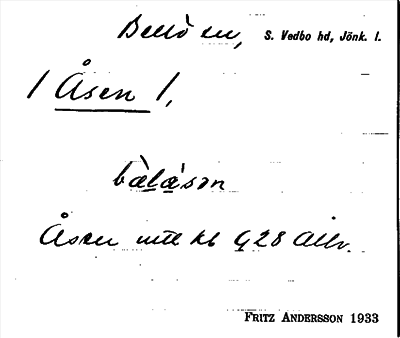 Bellö sn, S. Vedbo hd, Jönk. l.
/ Åsen /,
bàlásən
Åsen mtl kb G28 Allv.
FRITZ ANDERSSON 1933